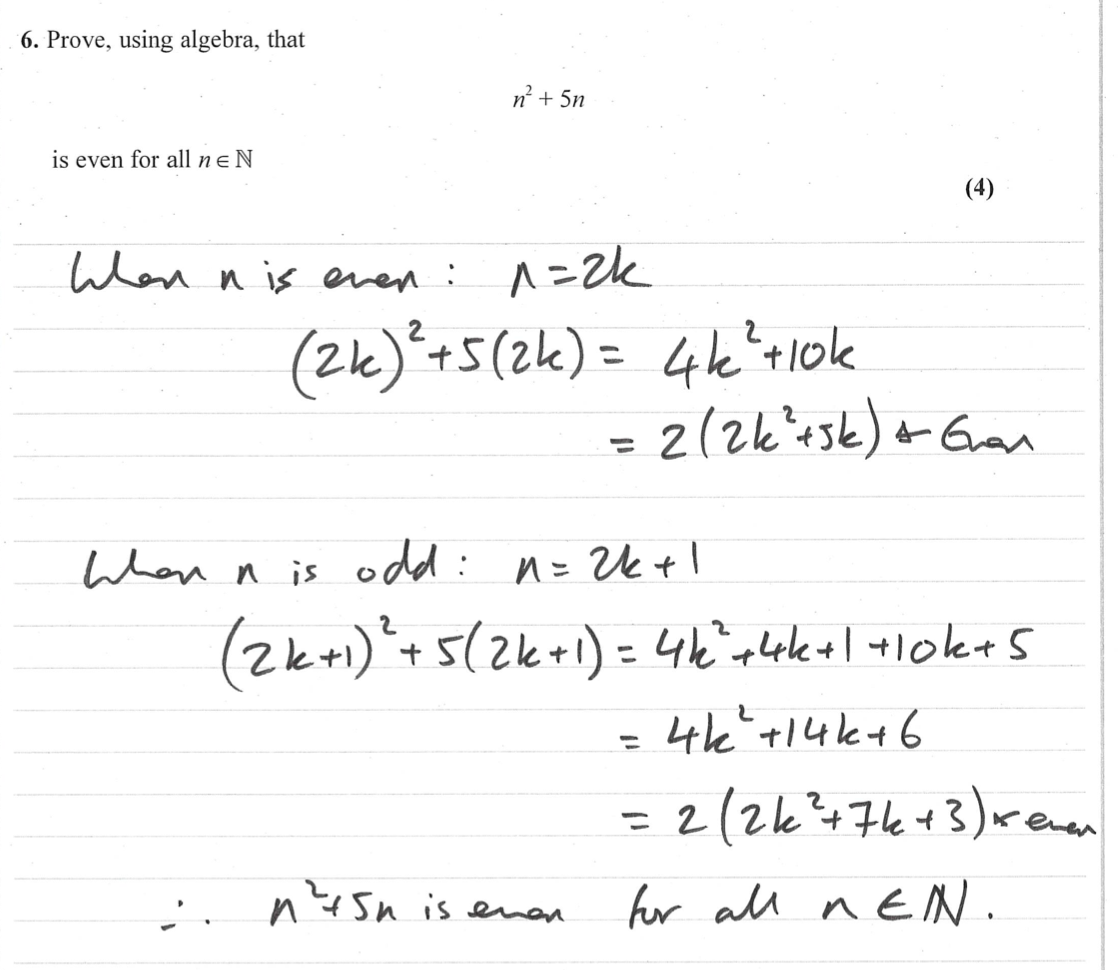 6. Prove, using algebra, that
n² + 5n
is even for all n ∈ ℕ
(4)
When n is even : n = 2k
(2k)² + 5(2k) = 4k² + 10k
= 2(2k² + 5k) ← Even
When n is odd : n = 2k + 1
(2k+1)² + 5(2k+1) = 4k² + 4k + 1 + 10k + 5
= 4k² + 14k + 6
= 2(2k² + 7k + 3) ← even
∴ n² + 5n is even for all n ∈ ℕ.